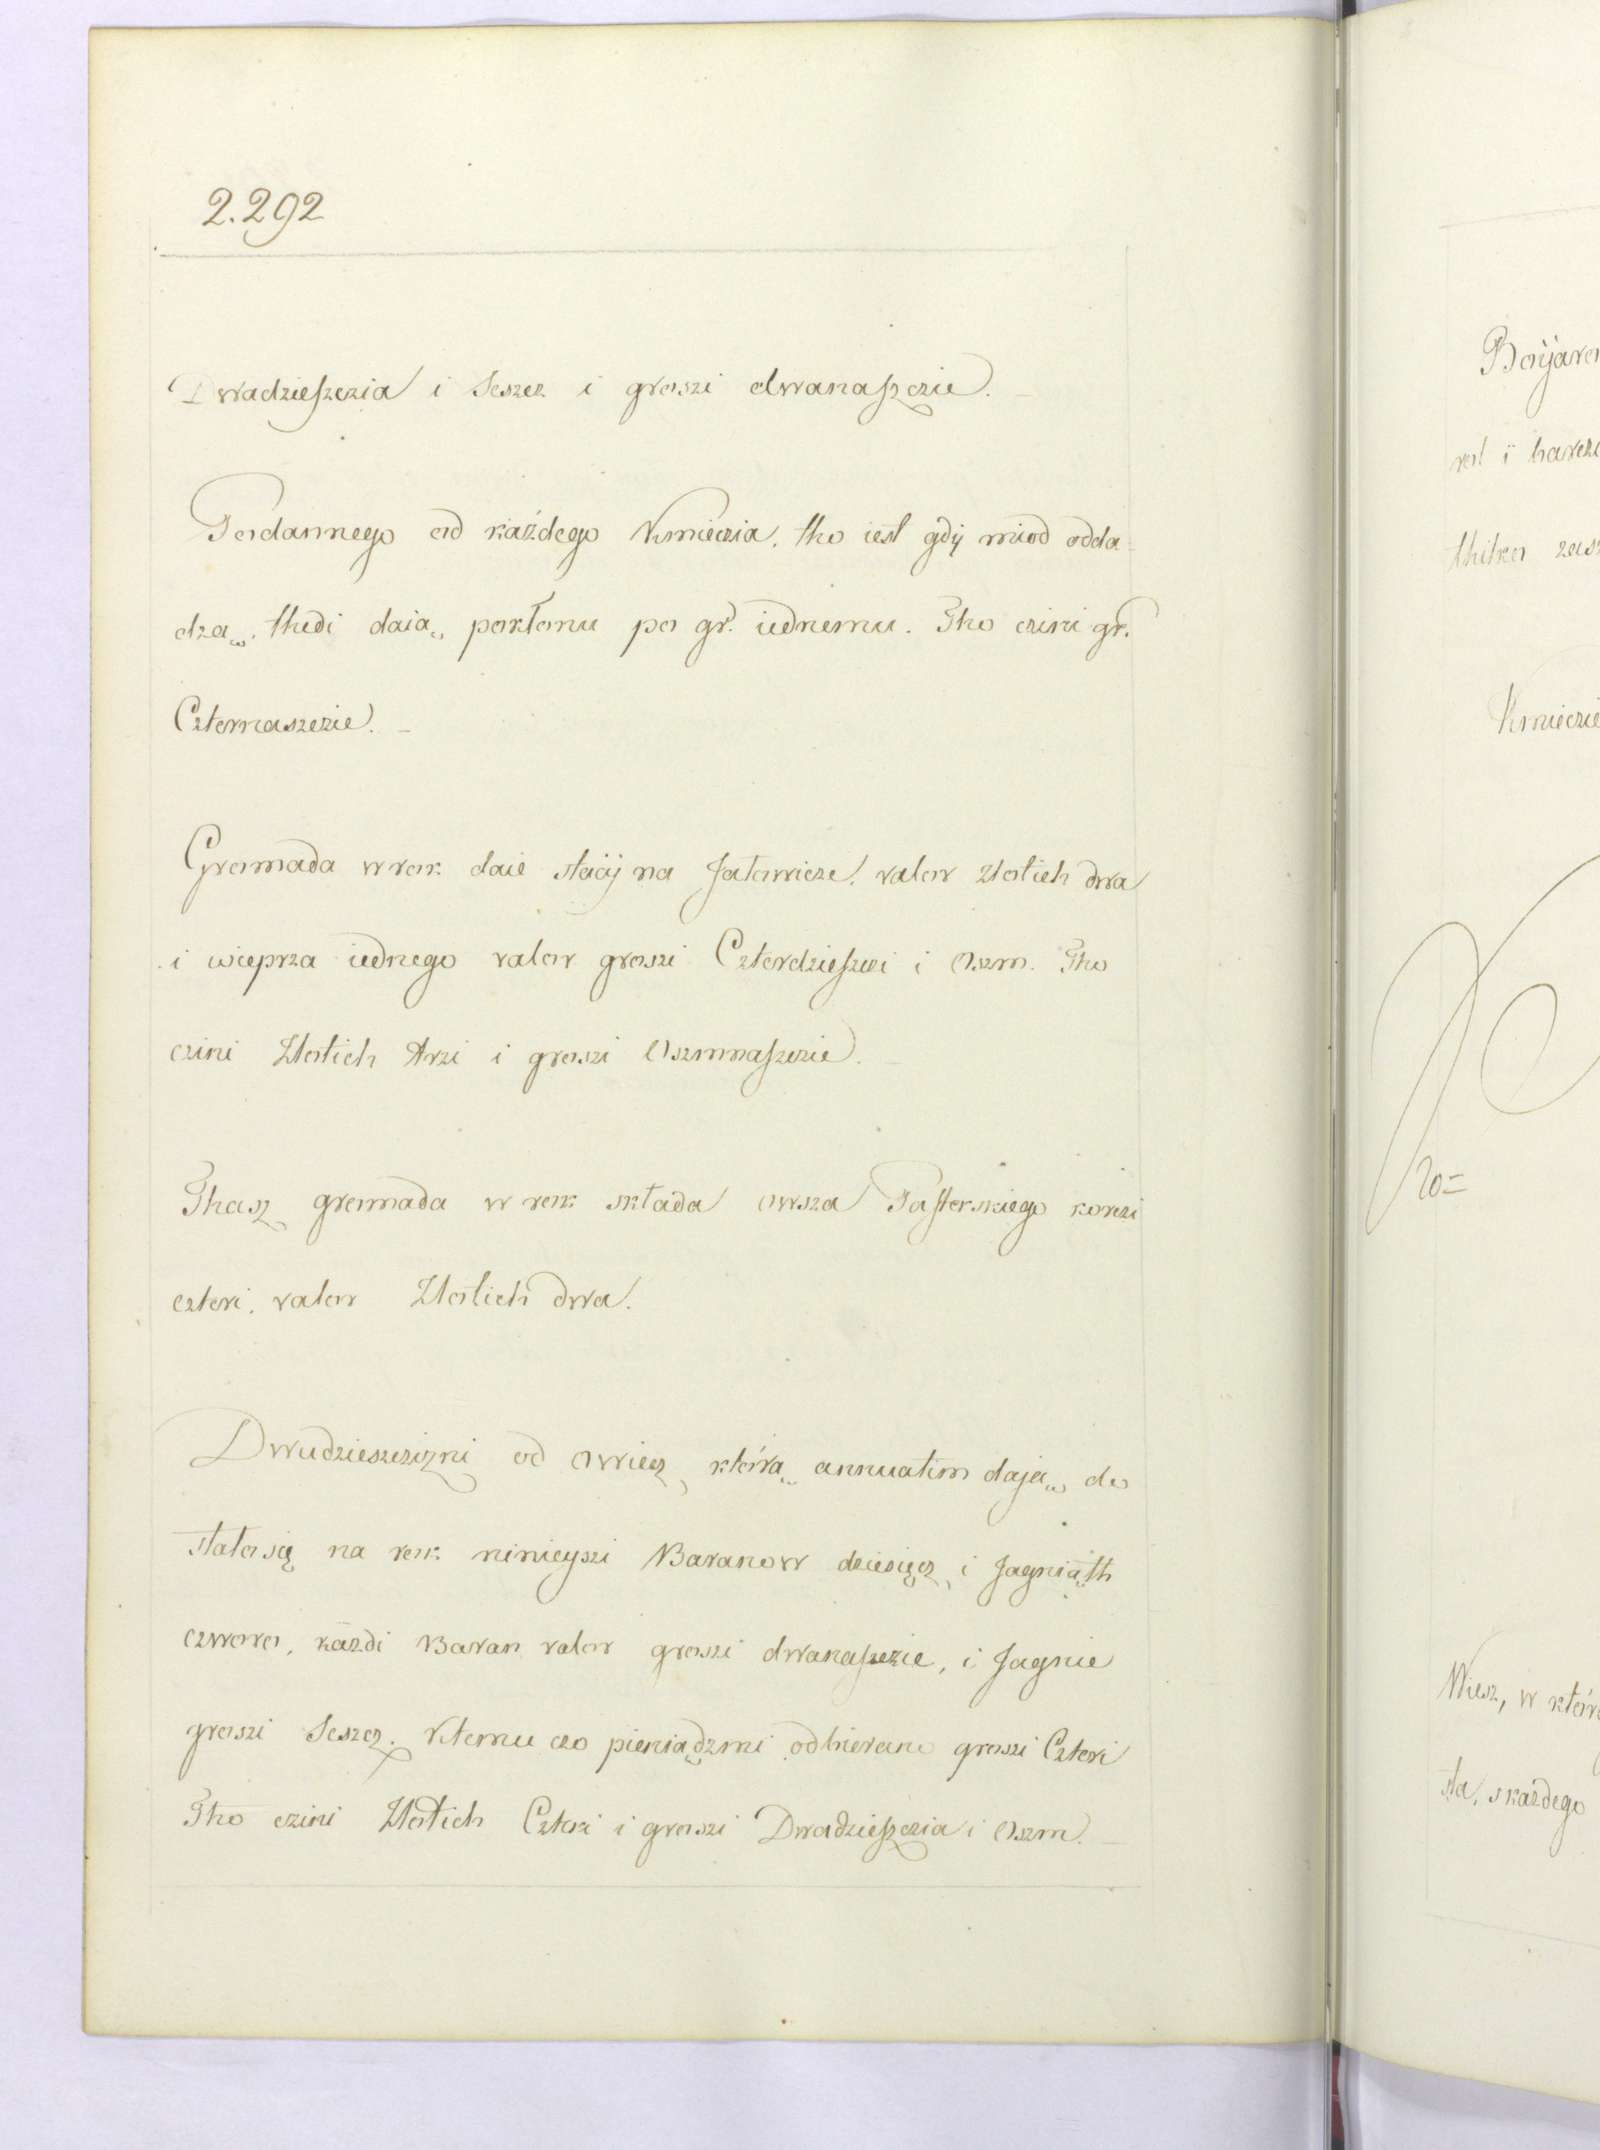 2.292
Dwadzieszczia i Seszcz i groszi dwanaszczie.
Podannego od każdego Kmieczia. tho iest gdÿ miod odda-
dzą. thedi daią pokłonu po gr. iednemu. Tho czini gr.
Czternaszczie.
Gromada w rok daie staciÿ na Jałowicze. valor złotich dwa
i wieprza iednego valor groszi Czterdzieszczi i Oszm. Tho
czini Złotich trzi i groszi Oszmnaszczie.
Thasz gromada w rok składa owsa Pasterskiego korczi
czteri. valor Złotich dwa.
Dwudzieszczizni od Owiecz, którą annuatim dają do
stało się na rok ninieyszi Baranow dziesięcz, i Jagniąth
czworo, każdi Baran valor groszi dwanaszczie, i Jagnie
groszi Seszcz. Ktemu czo pieniądzmi odbierano groszi Czteri
Tho czini Złotich Czteri i groszi Dwadzieszczia i Oszm.
thilko
Kmieczie
20=
Wiesz, w któr
sta, s każdego